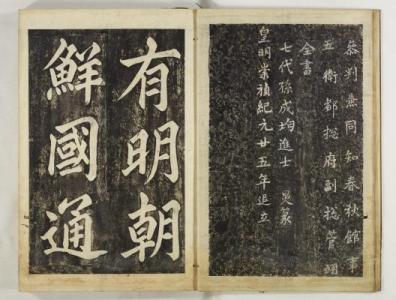 叅判兼同知春秋館事
五衛都摠府副摠管
全書
七代孫成均進士 炅篆
皇明崇禎紀元廿五年追立
有明朝
鮮國通